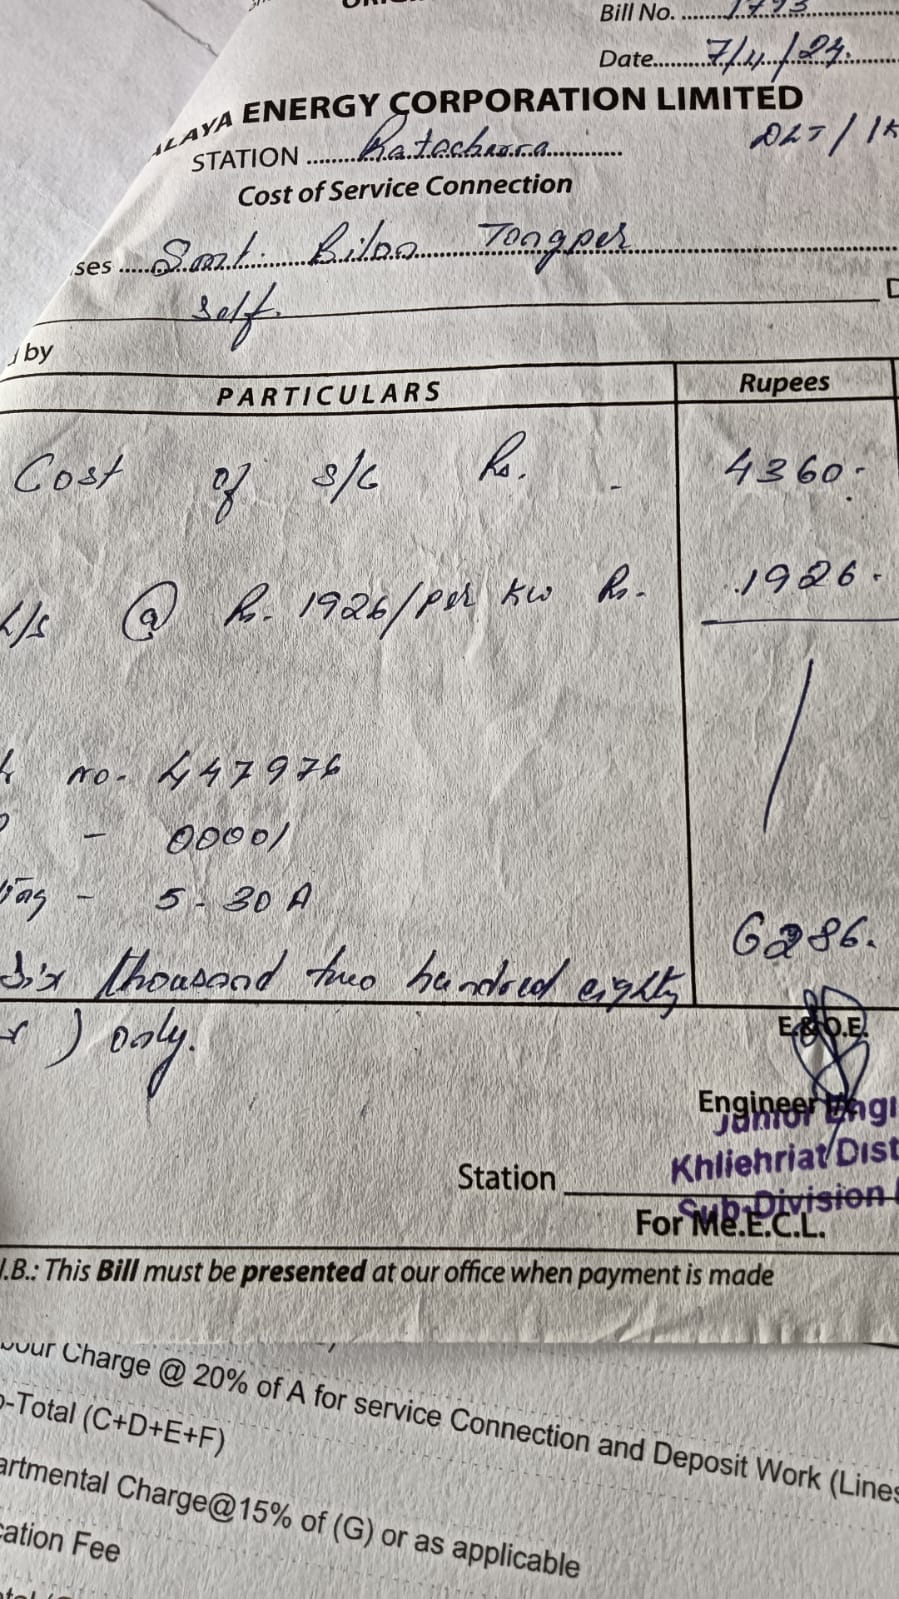 Bill No. 1793
Date 7/4/24.
ALAYA ENERGY CORPORATION LIMITED
STATION Ratacherra DLT / 1K
Cost of Service Connection
ses Smt. Tongper
self.
by
PARTICULARS Rupees
Cost of S/C Rs. - 4360-
L/S @ Rs. 1926/per KW Rs. 1926.
no. 447976
- 00001
ting - 5-30 A
6286.
Six thousand two hundred eighty
) only.
E.&O.E.
Engineer
Junior Engi
Khliehriat Dist
Station
Sub-Division
For Me.E.C.L.
N.B.: This Bill must be presented at our office when payment is made
bour Charge @ 20% of A for service Connection and Deposit Work (Lines
b-Total (C+D+E+F)
artmental Charge@15% of (G) or as applicable
cation Fee